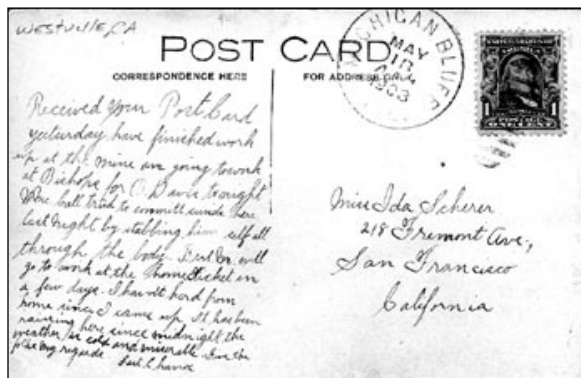 WESTVILLE, CA
POST CARD
CORRESPONDENCE HERE
FOR ADDRESS ONLY
MICHIGAN BLUFF
MAY
1903
1
ONE CENT
Received Your Post Card
yesturday have finished work
up at the mine am going to work
at Bishops for tonight
ball tried to committ here
last night by stabbing him self all
through the body. will
go to work at the home ticket in
a few days. I havnt hard from
home since I came up. It has been
raining here since midnight the
weather is cold and miserable Give the
folks my regards
Miss Ida Scherer
218 Fremont Ave.,
San Francisco
California